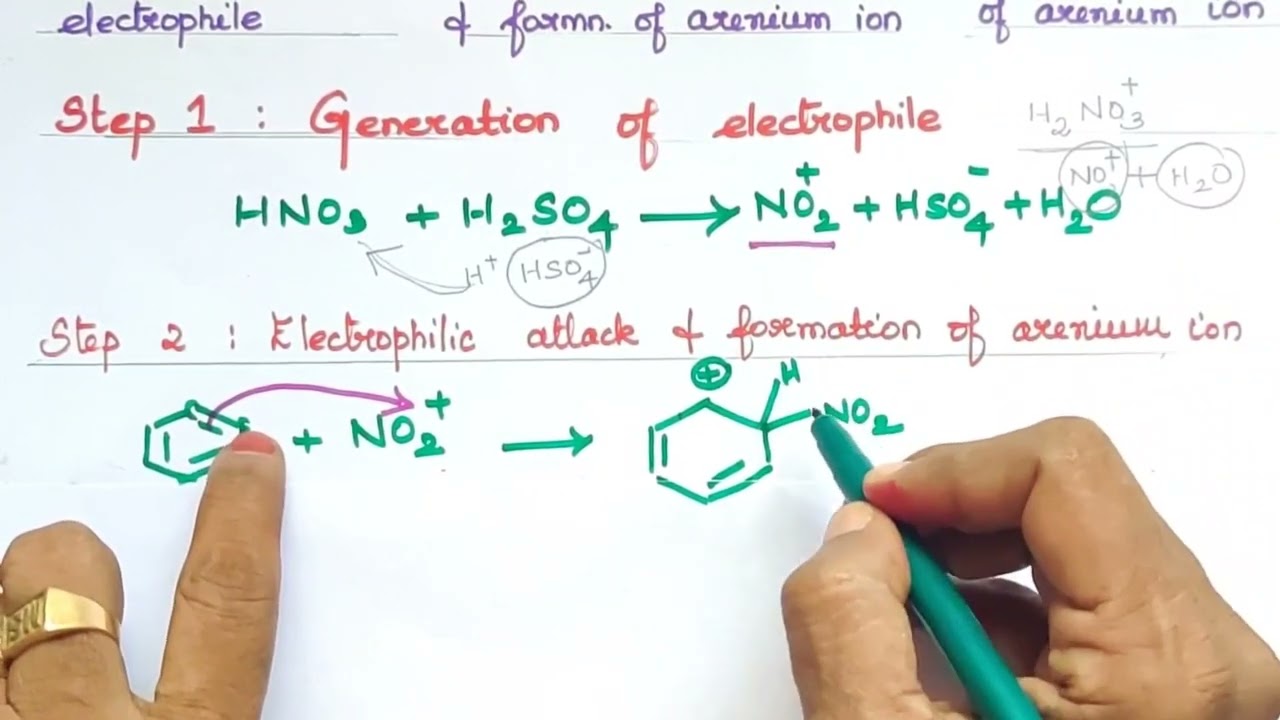 electrophile & formn. of arenium ion of arenium ion
Step 1 : Generation of electrophile
H₂NO₃⁺
NO₂⁺ + H₂O
HNO₃ + H₂SO₄ → NO₂⁺ + HSO₄⁻ + H₂O
H⁺ HSO₄⁻
Step 2 : Electrophilic attack & formation of arenium ion
+ NO₂⁺ → ⊕ H NO₂